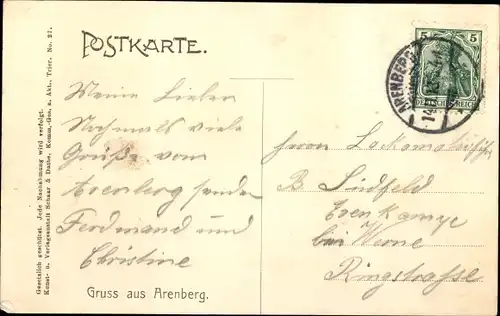 POSTKARTE.
5 5
DEUTSCHES REICH
ARENBERG
Meine Lieben
Nochmals viele
Grüße vom
Arenberg senden
Ferdinand und
Christine
Gruss aus Arenberg.
Herrn
B. Südfeld
bei Werne
Ringstrasse
Gesetzlich geschützt. Jede Nachahmung wird verfolgt.
Kunst- u. Verlagsanstalt Schaar & Dathe, Komm.-Ges. a. Akt., Trier. No. 27.